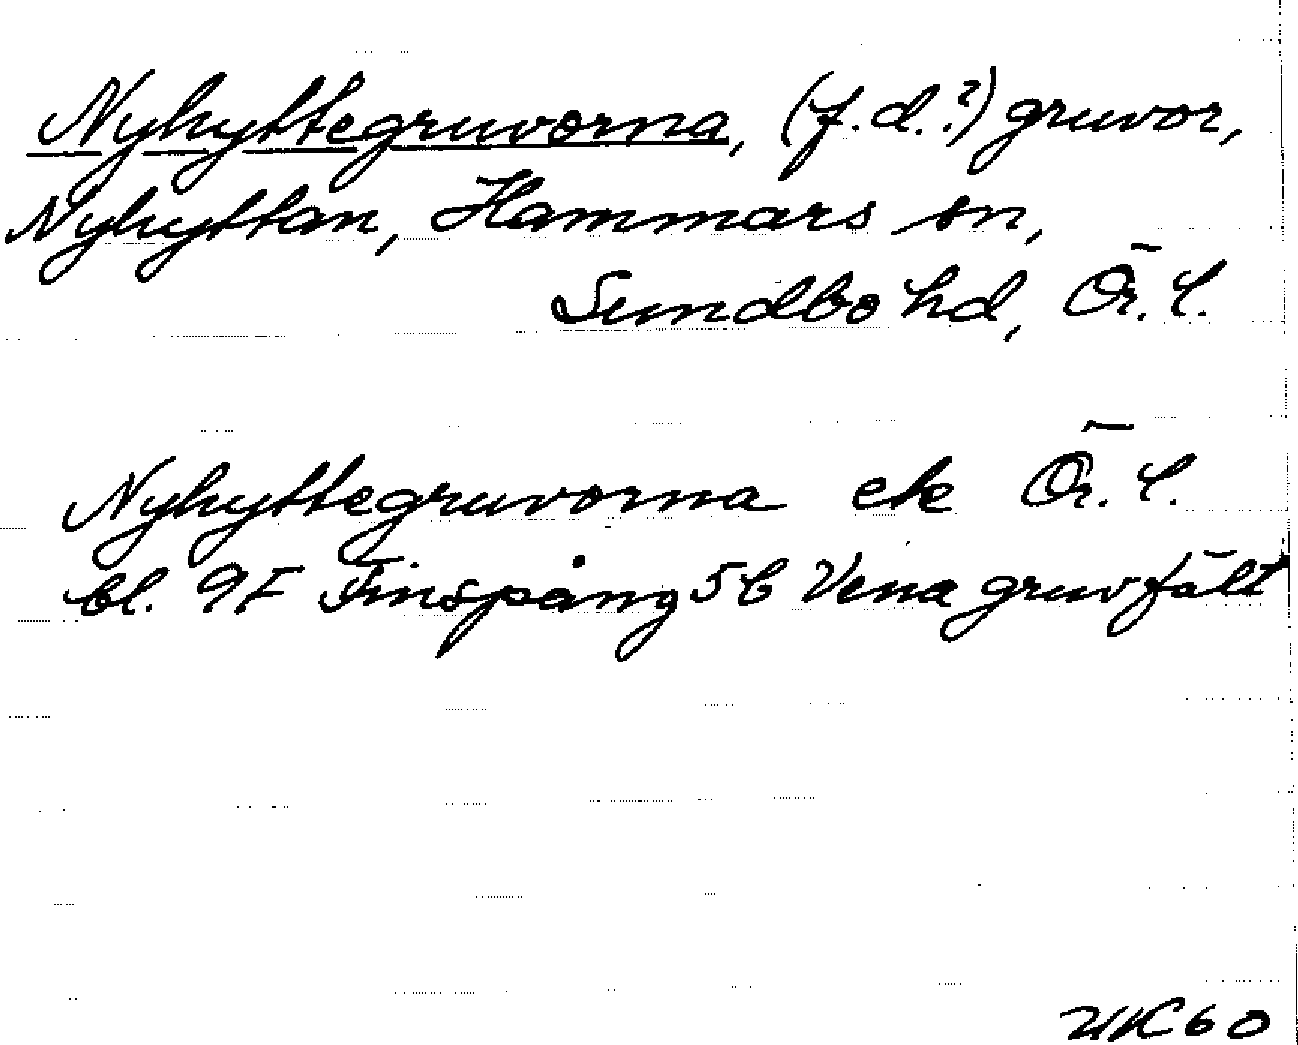 Nyhyttegruvorna, (f.d.?) gruvor,
Nyhyttan, Hammars sn,
Sundbo hd, Ör. l.
Nyhyttegruvorna ek Ör. l.
bl. 9F Finspång 5b Vena gruvfält
60